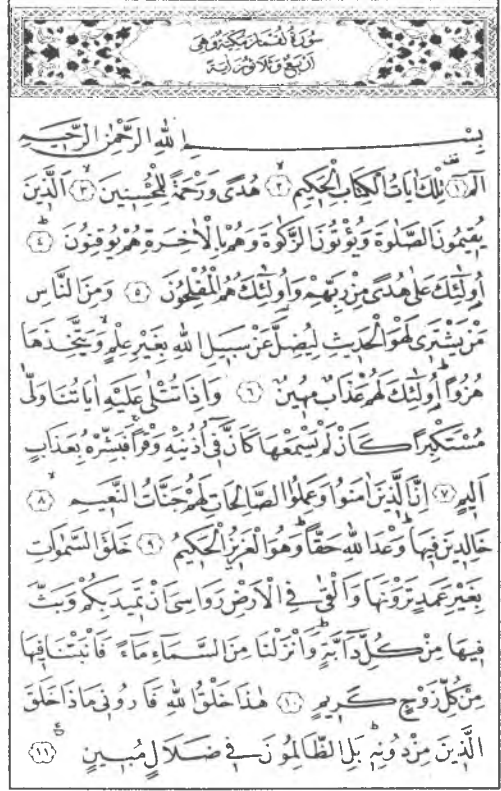 سُورَةُ لُقْمَانَ مَكِّيَّةٌ وَهِيَ
أَرْبَعٌ وَثَلَاثُونَ اٰيَةً
بِسْمِ اللّٰهِ الرَّحْمٰنِ الرَّحِيمِ
الٓمٓ ﴿١﴾ تِلْكَ اٰيَاتُ الْكِتَابِ الْحَكِيمِ ﴿٢﴾ هُدًى وَرَحْمَةً لِلْمُحْسِنِينَ ﴿٣﴾ اَلَّذِينَ
يُقِيمُونَ الصَّلٰوةَ وَيُؤْتُونَ الزَّكٰوةَ وَهُمْ بِالْاٰخِرَةِ هُمْ يُوقِنُونَ ﴿٤﴾
اُولٰٓئِكَ عَلٰى هُدًى مِنْ رَبِّهِمْ وَاُولٰٓئِكَ هُمُ الْمُفْلِحُونَ ﴿٥﴾ وَمِنَ النَّاسِ
مَنْ يَشْتَرِى لَهْوَ الْحَدِيثِ لِيُضِلَّ عَنْ سَبِيلِ اللّٰهِ بِغَيْرِ عِلْمٍ وَيَتَّخِذَهَا
هُزُوًا اُولٰٓئِكَ لَهُمْ عَذَابٌ مُهِينٌ ﴿٦﴾ وَاِذَا تُتْلٰى عَلَيْهِ اٰيَاتُنَا وَلّٰى
مُسْتَكْبِرًا كَاَنْ لَمْ يَسْمَعْهَا كَاَنَّ فِٓى اُذُنَيْهِ وَقْرًا فَبَشِّرْهُ بِعَذَابٍ
اَلِيمٍ ﴿٧﴾ اِنَّ الَّذِينَ اٰمَنُوا وَعَمِلُوا الصَّالِحَاتِ لَهُمْ جَنَّاتُ النَّعِيمِ ﴿٨﴾
خَالِدِينَ فِيهَا وَعْدَ اللّٰهِ حَقًّا وَهُوَ الْعَزِيزُ الْحَكِيمُ ﴿٩﴾ خَلَقَ السَّمٰوَاتِ
بِغَيْرِ عَمَدٍ تَرَوْنَهَا وَاَلْقٰى فِى الْاَرْضِ رَوَاسِىَ اَنْ تَمِيدَ بِكُمْ وَبَثَّ
فِيهَا مِنْ كُلِّ دَٓابَّةٍ وَاَنْزَلْنَا مِنَ السَّمَٓاءِ مَٓاءً فَاَنْبَتْنَا فِيهَا
مِنْ كُلِّ زَوْجٍ كَرِيمٍ ﴿١٠﴾ هٰذَا خَلْقُ اللّٰهِ فَاَرُونِى مَاذَا خَلَقَ
الَّذِينَ مِنْ دُونِهِ بَلِ الظَّالِمُونَ فِى ضَلَالٍ مُبِينٍ ﴿١١﴾